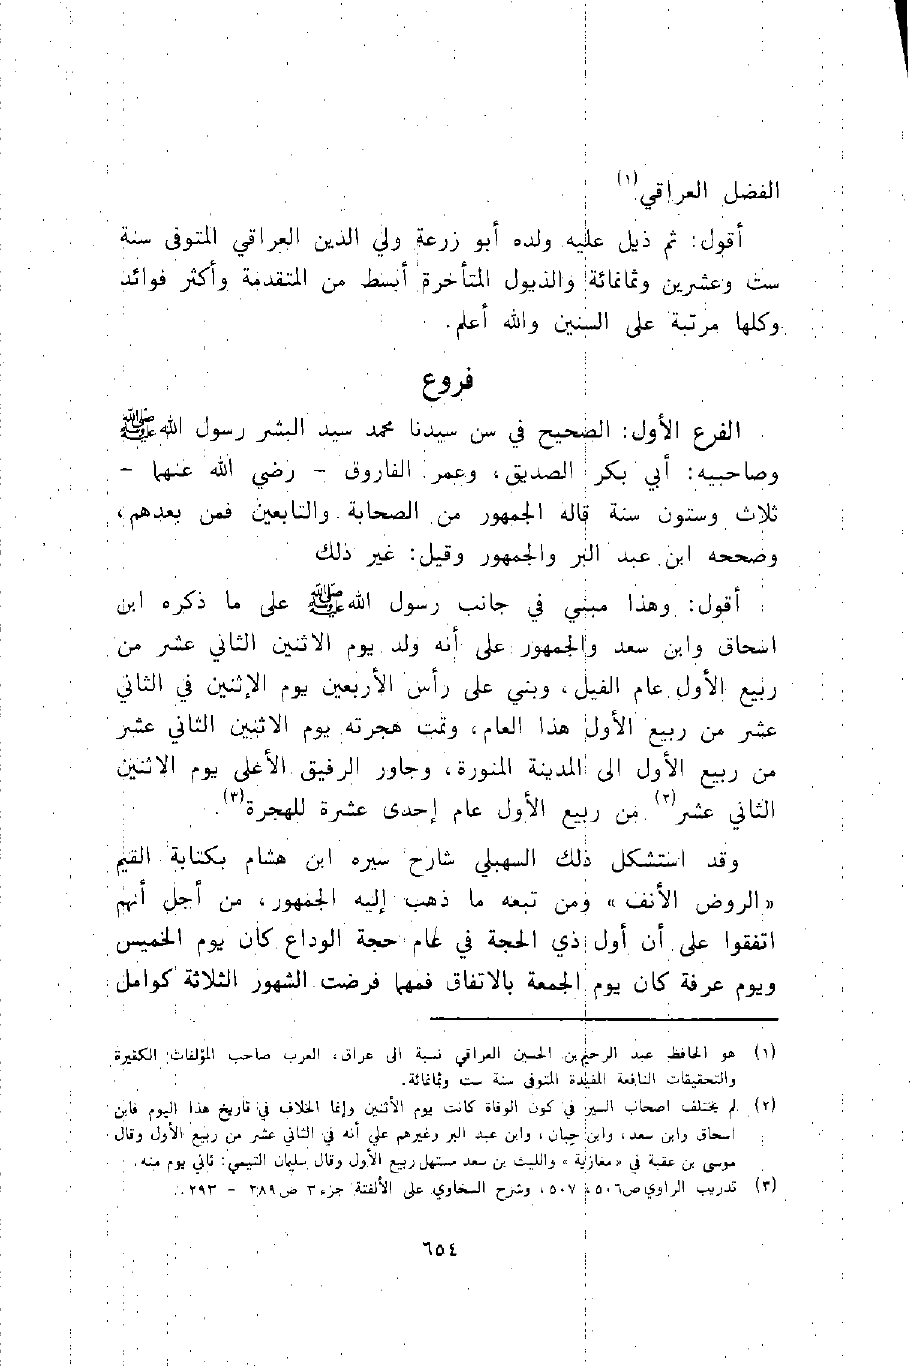 الفضل العراقي(١)
أقول: ثم ذيل عليه ولده أبو زرعة ولي الدين العراقي المتوفى سنة
ست وعشرين وثمانمائة والذيول المتأخرة أبسط من المتقدمة وأكثر فوائد
وكلها مرتبة على السنين والله أعلم.
فروع
الفرع الأول: الصحيح في سن سيدنا محمد سيد البشر رسول الله ﷺ
وصاحبيه: أبي بكر الصديق، وعمر الفاروق - رضي الله عنهما -
ثلاث وستون سنة قاله الجمهور من الصحابة والتابعين فمن بعدهم،
وصححه ابن عبد البر والجمهور وقيل: غير ذلك
أقول: وهذا مبني في جانب رسول الله ﷺ على ما ذكره ابن
اسحاق وابن سعد والجمهور على أنه ولد يوم الاثنين الثاني عشر من
ربيع الأول عام الفيل، وبني على رأس الأربعين يوم الإثنين في الثاني
عشر من ربيع الأول هذا العام، وتمت هجرته يوم الاثنين الثاني عشر
من ربيع الأول الى المدينة المنورة، وجاور الرفيق الأعلى يوم الاثنين
الثاني عشر(٢) من ربيع الأول عام إحدى عشرة للهجرة(٣).
وقد استشكل ذلك السهيلي شارح سيره ابن هشام بكتابة القيم
«الروض الأنف» ومن تبعه ما ذهب إليه الجمهور، من أجل أنهم
اتفقوا على أن أول ذي الحجة في عام حجة الوداع كان يوم الخميس
ويوم عرفة كان يوم الجمعة بالاتفاق فمهما فرضت الشهور الثلاثة كوامل
(١) هو الحافظ عبد الرحيم بن الحسين العراقي نسبة الى عراق، العرب صاحب المؤلفات الكثيرة
والتحقيقات النافعة المفيدة المتوفى سنة ست وثمانمائة.
(٢) لم يختلف اصحاب السير في كون الوفاة كانت يوم الأثنين وإنما الخلاف في تاريخ هذا اليوم فابن
اسحاق وابن سعد، وابن حبان، وابن عبد البر وغيرهم على أنه في الثاني عشر من ربيع الأول وقال
موسى بن عقبة في «مغازية» والليث بن سعد مستهل ربيع الأول وقال سليمان التيمي: ثاني يوم منه.
(٣) تدريب الراوي ص٥٠٦، ٥٠٧، وشرح السخاوي على الألفتة جزء٣ ص٣٨٩ - ٢٩٣.
٦٥٤